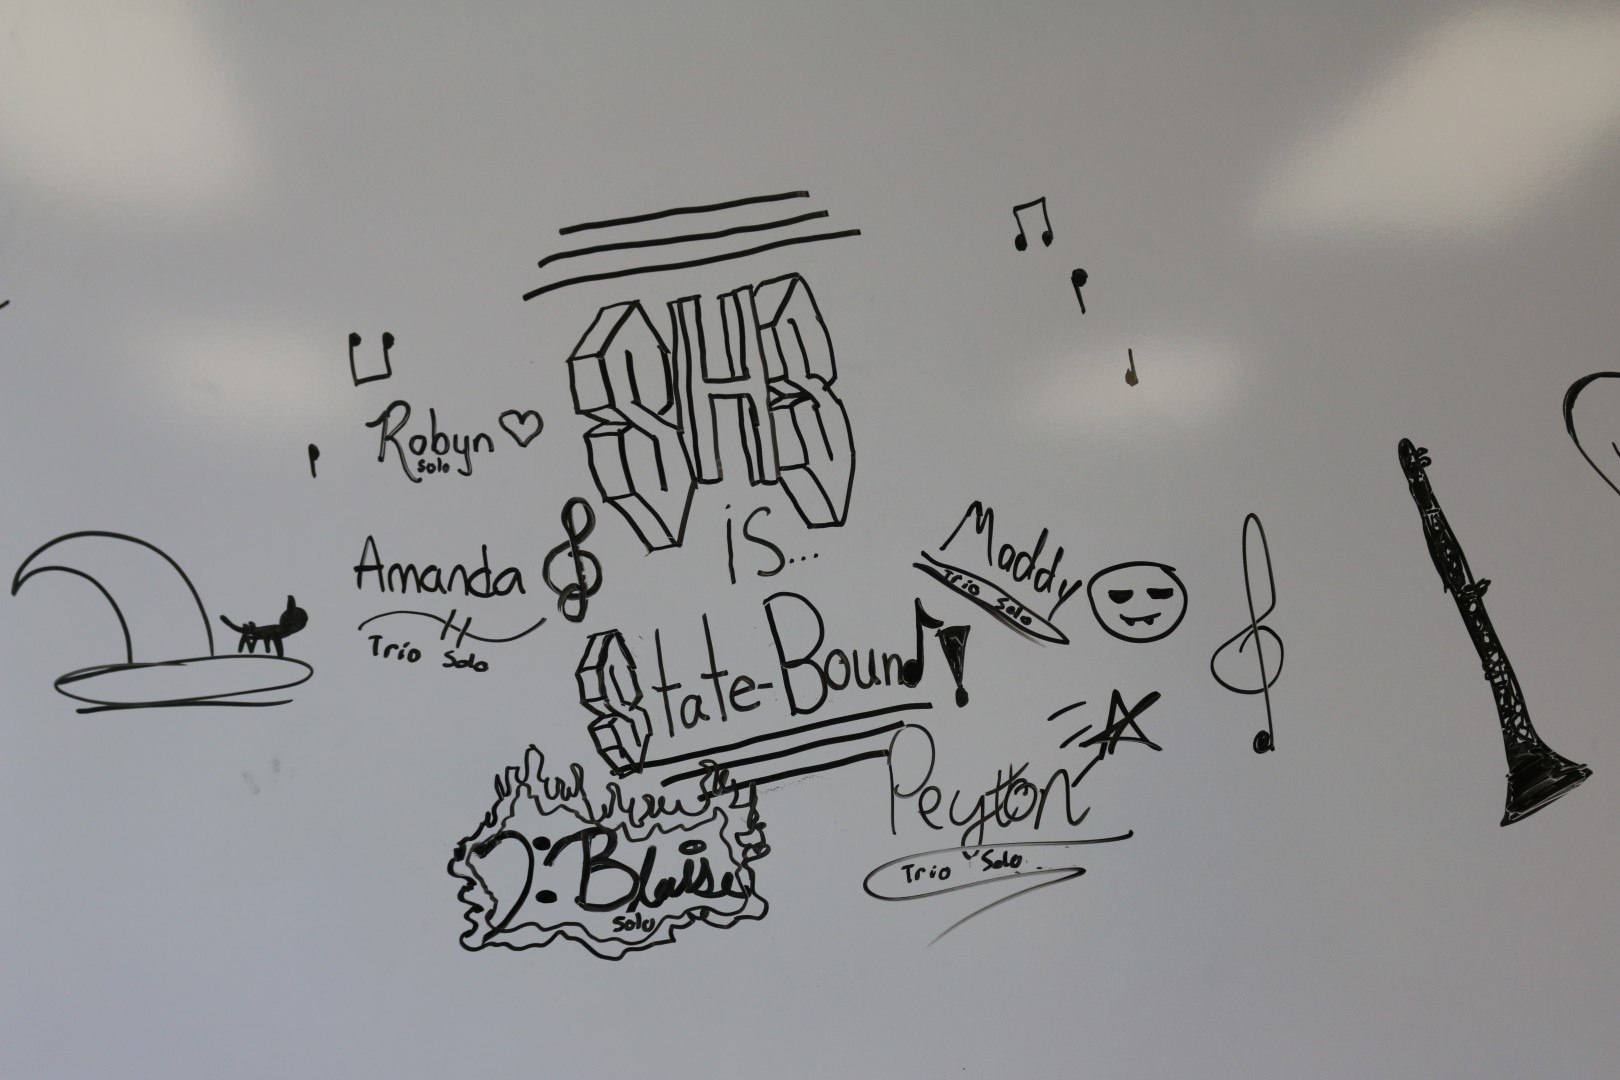 SHS
is...
State-Bound!
Robyn
Solo
Amanda
Trio Solo
Maddy
Trio Solo
Peyton
Trio Solo
Blaise
Solo